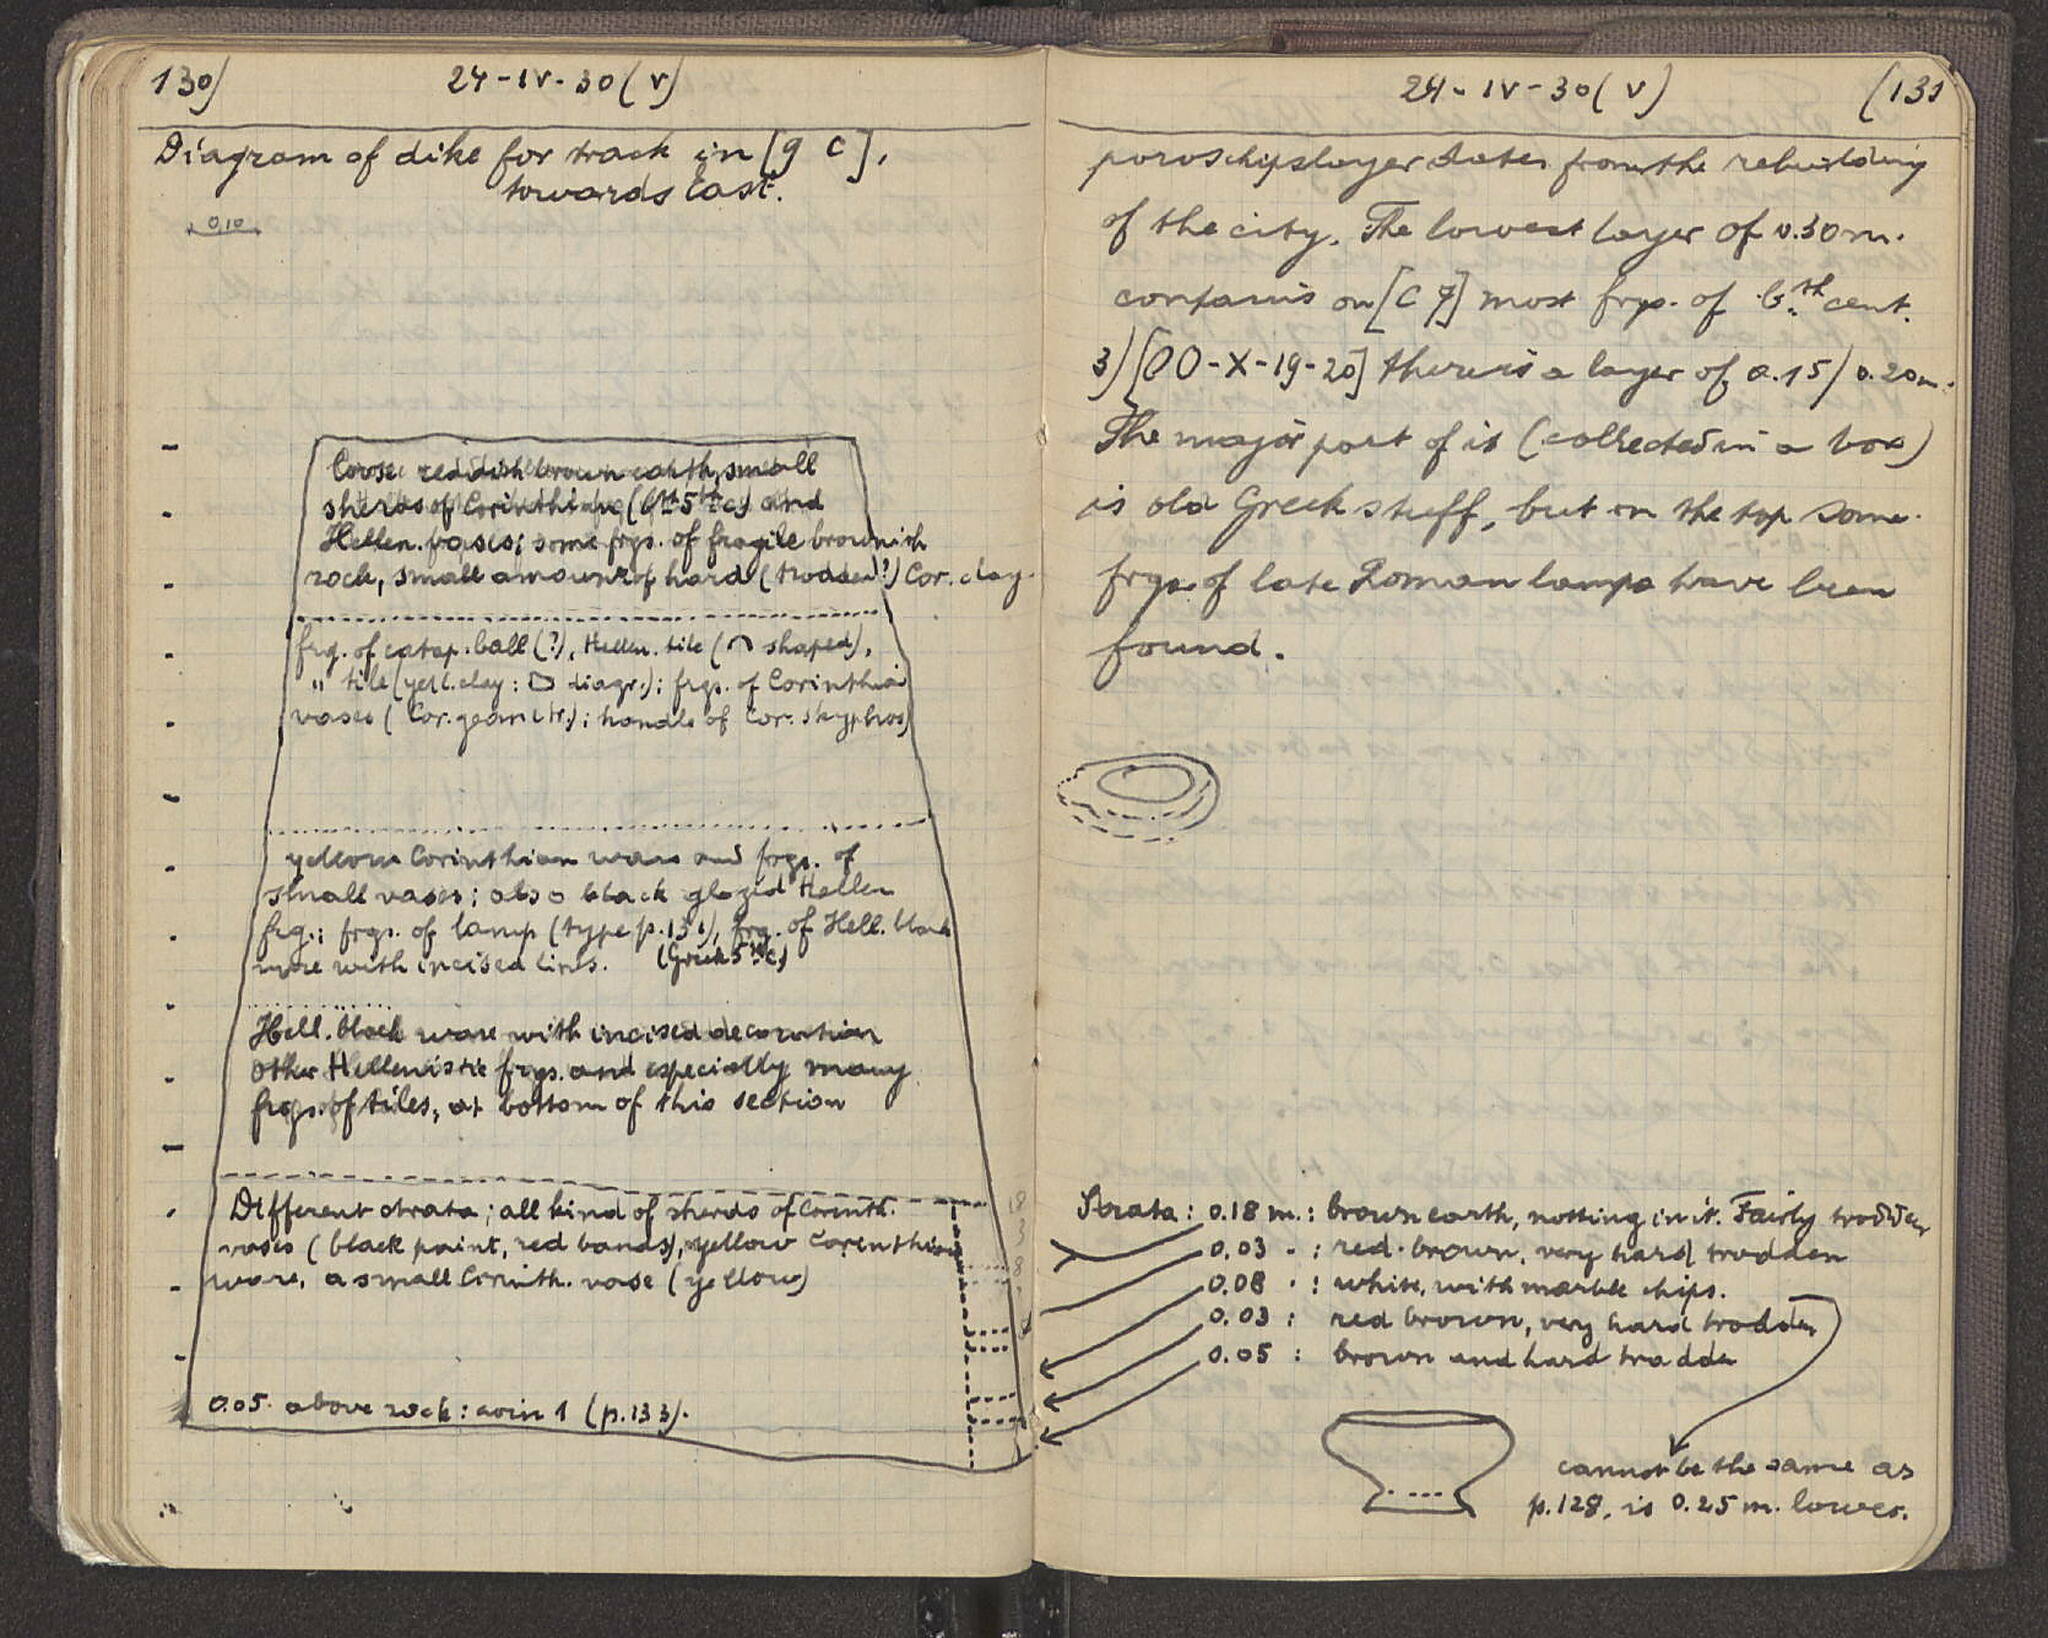 130)
24-IV-30 (V)
Diagram of dike for track in [g c],
towards East.
0,10
Loose reddish brown earth, small
sherds of Corinthian (6th 5th c) and
Hellen. vases; some frgs. of fragile brownish
rock, small amount of hard (trodden?) Cor. clay.
frg. of catap. ball (?), Hellen. tile (⌒ shaped),
" tile (yell. clay: diagr.); frgs. of Corinthia
vases (Cor. geometr.); handle of Cor. skyphos)
yellow Corinthian ware and frgs. of
small vases; also black glazed Hellen
frg.; frgs. of lamp (type p. 131), frg. of Hell. black
ware with incised lines. (Greek 5th c)
Hell. black ware with incised decoration
other Hellenistic frgs. and especially many
frgs. of tiles, at bottom of this section
Different strata; all kind of sherds of Corinth.
vases (black paint, red bands), yellow Corenthian
ware, a small Corinth. vase (yellow)
18
3
8
0.05 above rock: coin 1 (p. 133).
24-IV-30 (V)
(131
poroschipslayer dates from the rebuilding
of the city. The lowest layer of 0.30 m.
contains on [C 7] most frgs. of 6.th cent.
3) [OO-X-19-20] there is a layer of 0.15/0.20 m.
The major part of it (collected in a box)
is old Greek stuff, but on the top some
frgs. of late Roman lamps have been
found.
Strata: 0.18 m.: brown earth, notting in it. Fairly trodden
0.03 - : red-brown, very hard trodden
0.08 · : white, with marble chips.
0.03 : red brown, very hard trodden
0.05 : brown and hard trodde
cannot be the same as
p. 128, is 0.25 m. lower.